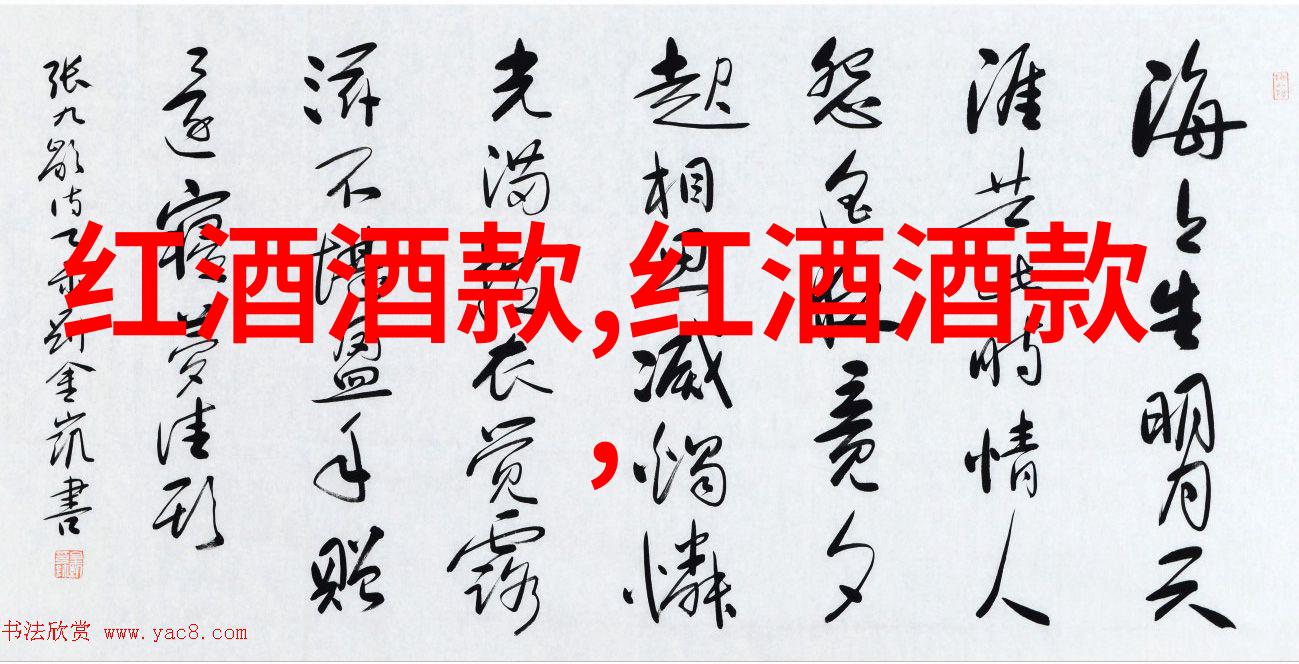 海上生明月天
涯共此時情人
怨遥夜竟夕
起相思滅燭憐
光满披衣觉露
滋不堪盈手贈
還寝夢佳期
张九龄诗金凯書
红酒酒款,红酒酒款
,
书法欣赏 www.yac8.com